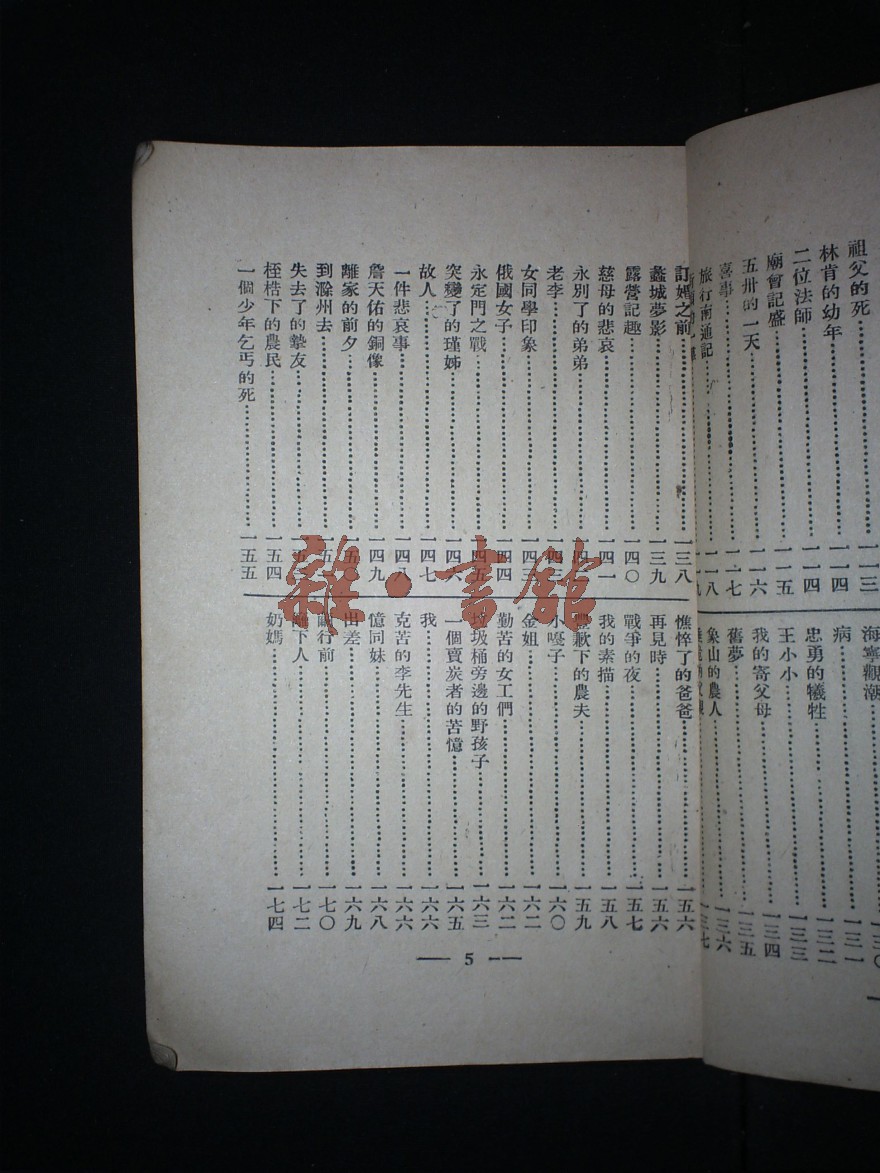 祖父的死……一一三
林肯的幼年……一一四
二位法師……一一四
廟會記盛……一一五
五卅的一天……一一六
喜事……一一七
旅行南通記……一一八
海寧觀潮……一三〇
病……一三一
忠勇的犧牲……一三二
王小小……一三三
我的寄父母……一三四
舊夢……一三五
象山的農人……一三六
一三七
訂婚之前……一三八
蠡城夢影……一三九
露營記趣……一四〇
慈母的悲哀……一四一
永別了的弟弟……一四
老李……一四
女同學印象……一四三
俄國女子……一四四
永定門之戰……一四五
突變了的瑾姊……一四六
故人……一四七
一件悲哀事……一四八
詹天佑的銅像……一四九
離家的前夕……一五〇
到滁州去……一五一
失去了的摯友……一五
桎梏下的農民……一五四
一個少年乞丐的死……一五五
憔悴了的爸爸……一五六
再見時……一五六
戰爭的夜……一五七
我的素描……一五八
歉下的農夫……一五九
小啞子……一六〇
金姐……一六二
勤苦的女工們……一六二
垃圾桶旁邊的野孩子……一六三
一個賣炭者的苦憶……一六五
我……一六六
克苦的李先生……一六六
憶同妹……一六八
出差……一六九
行前……一七〇
下人……一七二
奶媽……一七四
— 5 —
雜·書館